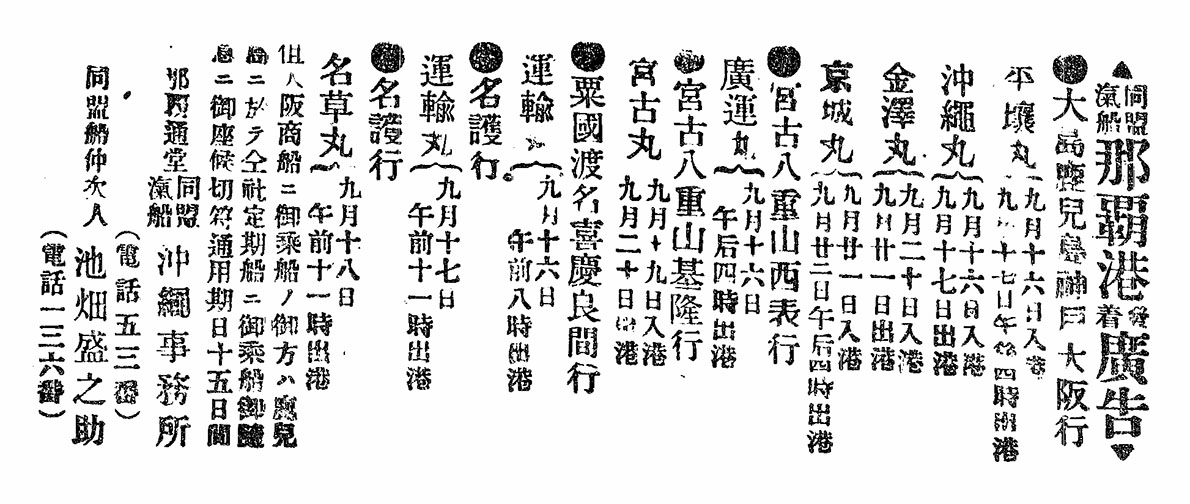 ▲同盟汽船那覇港發着廣告▼
●大島鹿兒島神戸大阪行
平壤丸 九月十六日入港
九月十七日午后四時出港
沖繩丸 九月十六日入港
九月十七日出港
金澤丸 九月二十日入港
九月廿一日出港
京城丸 九月廿一日入港
九月廿二日午后四時出港
●宮古八重山西表行
廣運丸 九月十六日
午后四時出港
●宮古八重山基隆行
宮古丸 九月十九日入港
九月二十日出港
●粟國渡名喜慶良間行
運輸丸 九月十六日
午前八時出港
●名護行
運輸丸 九月十七日
午前十一時出港
●名護行
名草丸 九月十八日
午前十一時出港
但大阪商船ニ御乘船ノ御方ハ鹿兒
島ニ於テ仝社定期船ニ御乘船御隨
意ニ御座候切符通用期日十五日間
那覇通堂 同盟汽船 沖繩事務所
(電話五三番)
同盟船仲次人 池畑盛之助
(電話一三六番)